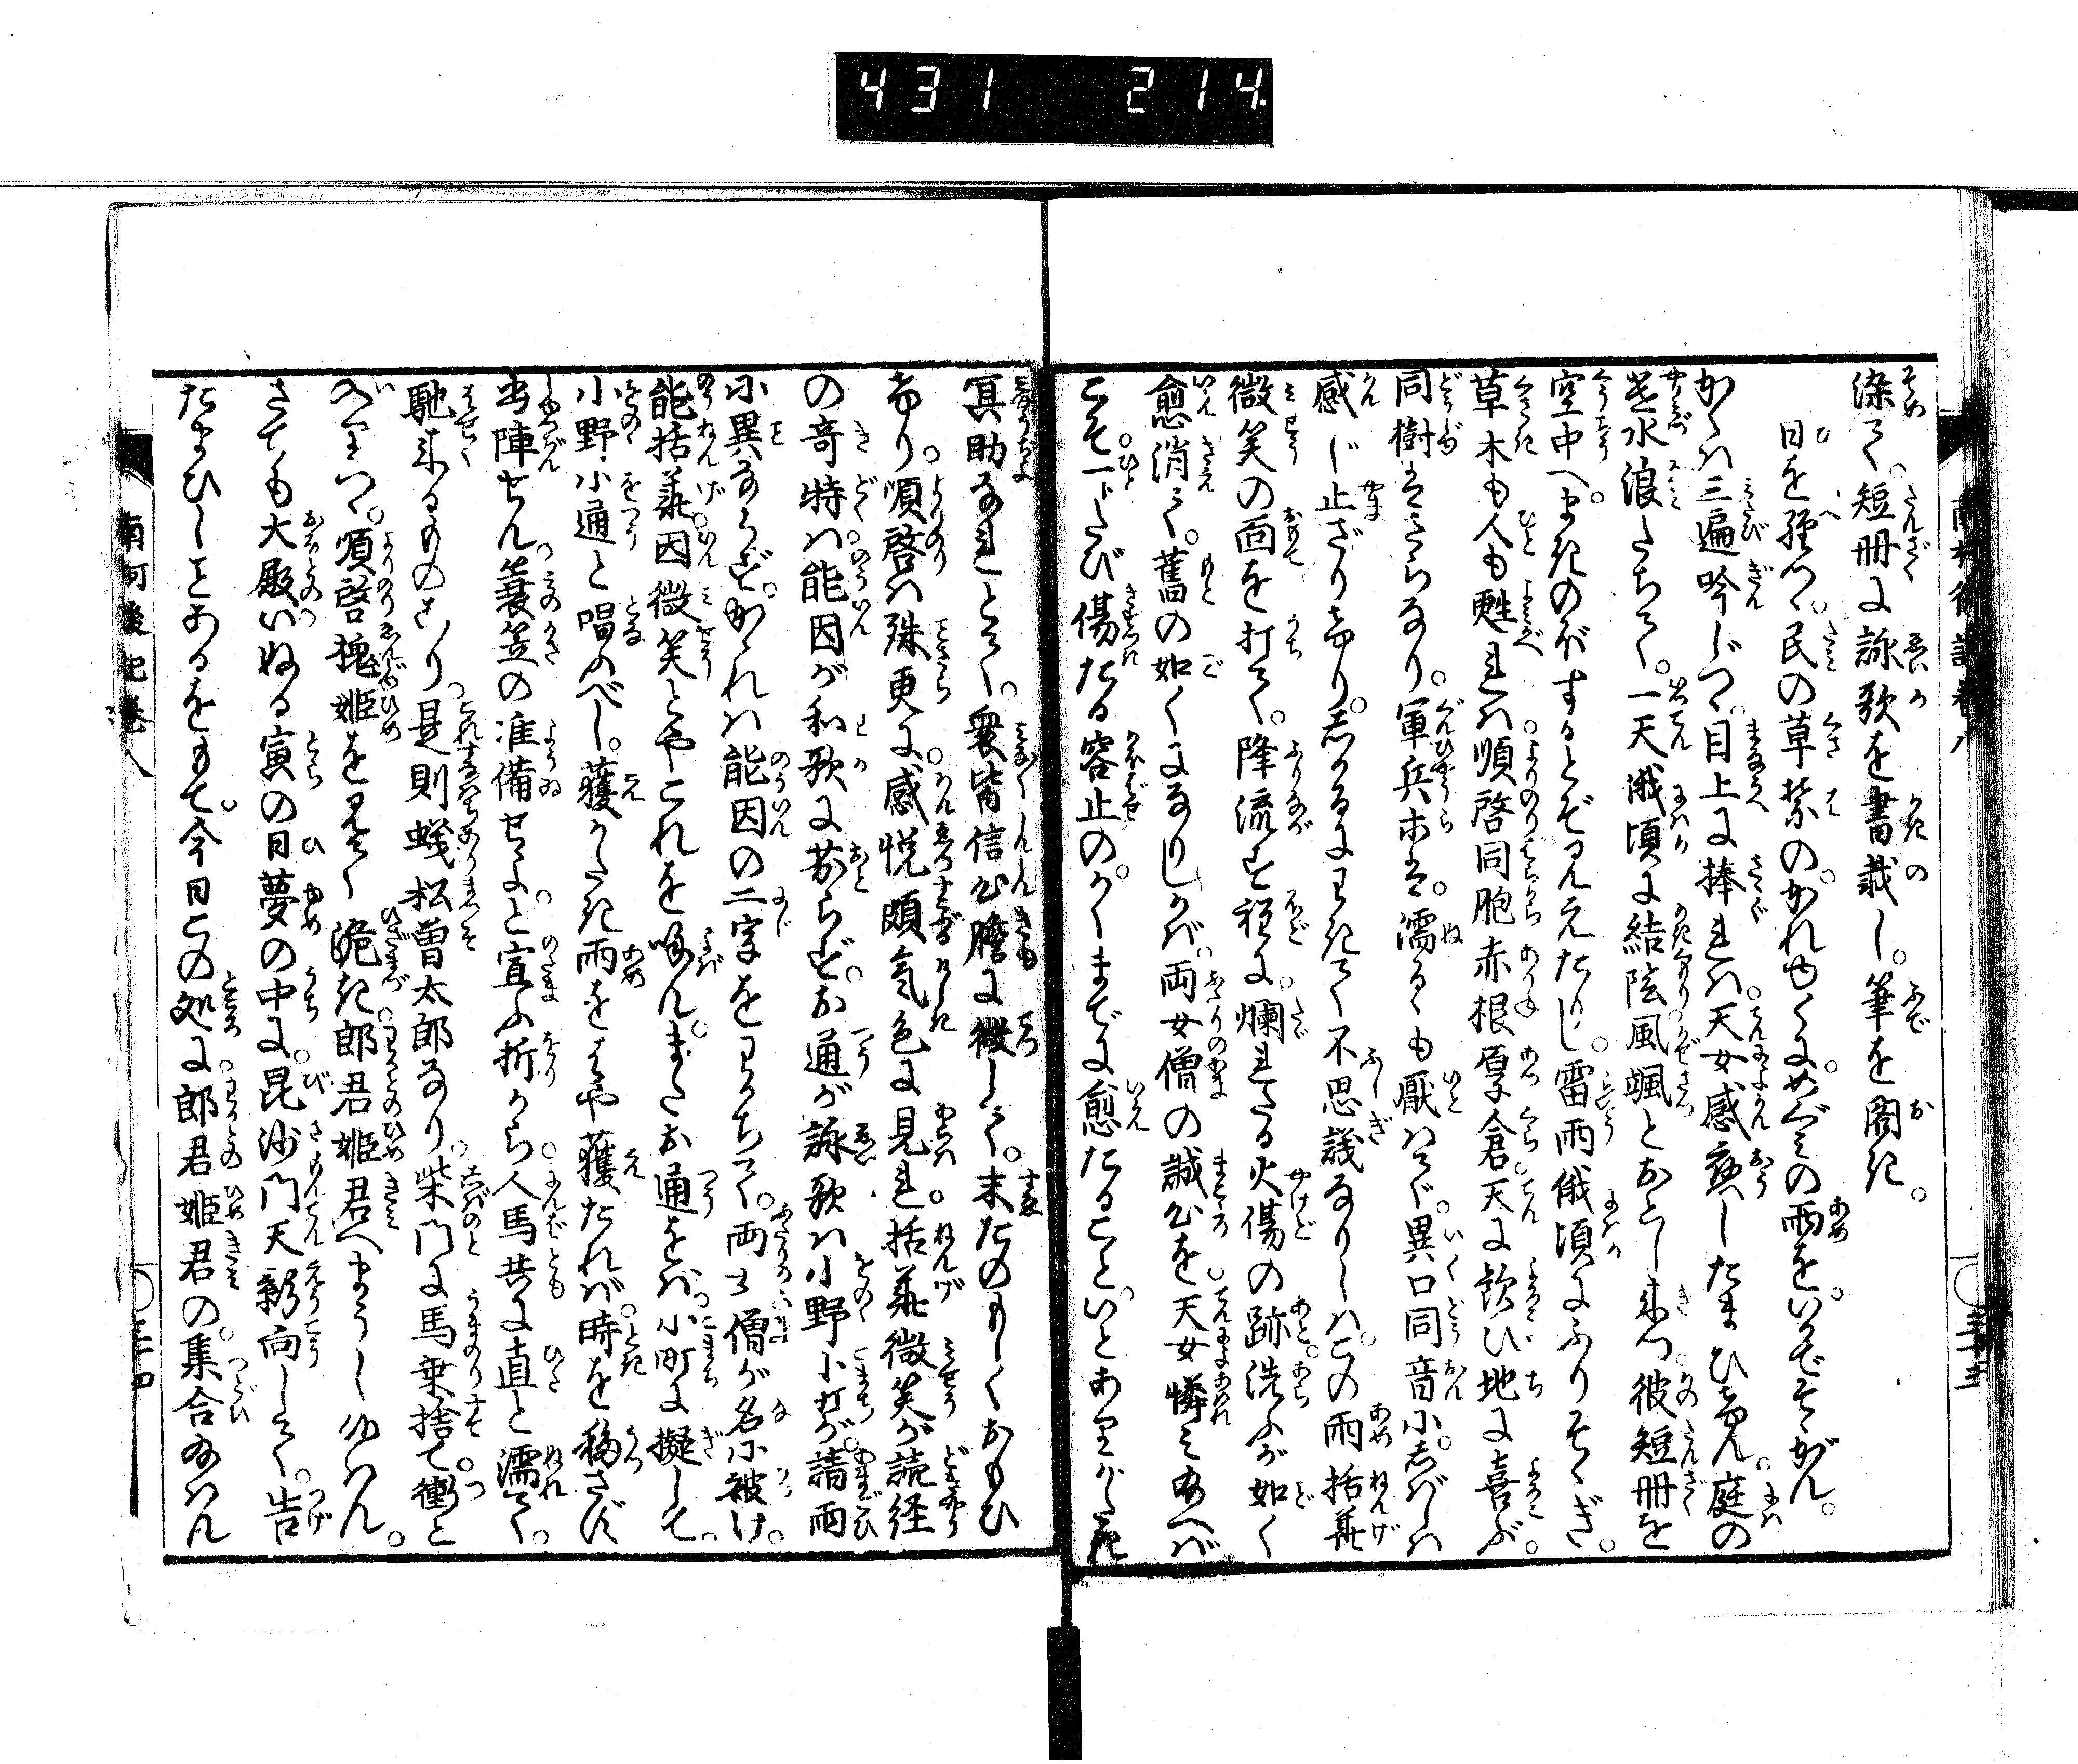 431 214.
染て。短冊に詠歌を書載し。筆を閣き。
日を経つゝ。民の草葉の。かれゆくに。めぐみの雨を。いかでそゝがん。
かくは三遍吟じつゝ。目上に捧れば。天女感応したまひけん。庭の
水浪たちて。一天俄頃に結陰。風颯とおとし来つ。彼短冊を
空中へまきのぼすかとぞ見えたりし。雷雨俄頃にふりそゝぎ。
草木も人も甦れば。順啓同胞赤根厚倉。天に歓び地に喜ぶ。
同樹はさらなり。軍兵等は。濡るゝも厭はで。異口同音に。しばしは
感じ止ざりけり。しかるにわきて不思議なりしは。この雨拈華
微笑の面を打て。降流す程に。爛れたる火傷の跡。洗ふが如く
愈消て。舊の如くになりしかば。両女僧の誠心を。天女憐み給へば
こそ。一トたび傷たる容止の。かくまでに愈たること。いとありがたき
冥助なれとて。衆皆信心膽に徹して。末たのもしくおもひ
けり。順啓は殊更に。感悦頗気色に見れ。拈華微笑が読経
の奇特は。能因が和歌に劣らず。お通が詠歌は小野小町が。請雨
に異ならず。かゝれば能因の二字をわかちて。両女僧が名に被け。
能拈華。因微笑とやこれを喚ん。またお通をば。小町に擬して。
小野小通と唱ふべし。獲がたき雨をはや獲たれば。時を移さず
出陣せん。簑笠の准備せよ。と宣ふ折から。人馬共に直と濡て。
馳来るものあり。是則蟻松曽太郎なり。柴門に馬乗捨て。衝と
入りつゝ。順啓槐姫を見て。跪き。郎君姫君へまうし侍はん。
さても大殿いぬる寅の日夢の中に。毘沙門天影向して。告
たまひしことあるをもて。今日この処に。郎君姫君の。集合給はん
南柯後記巻八
三十四
三十三